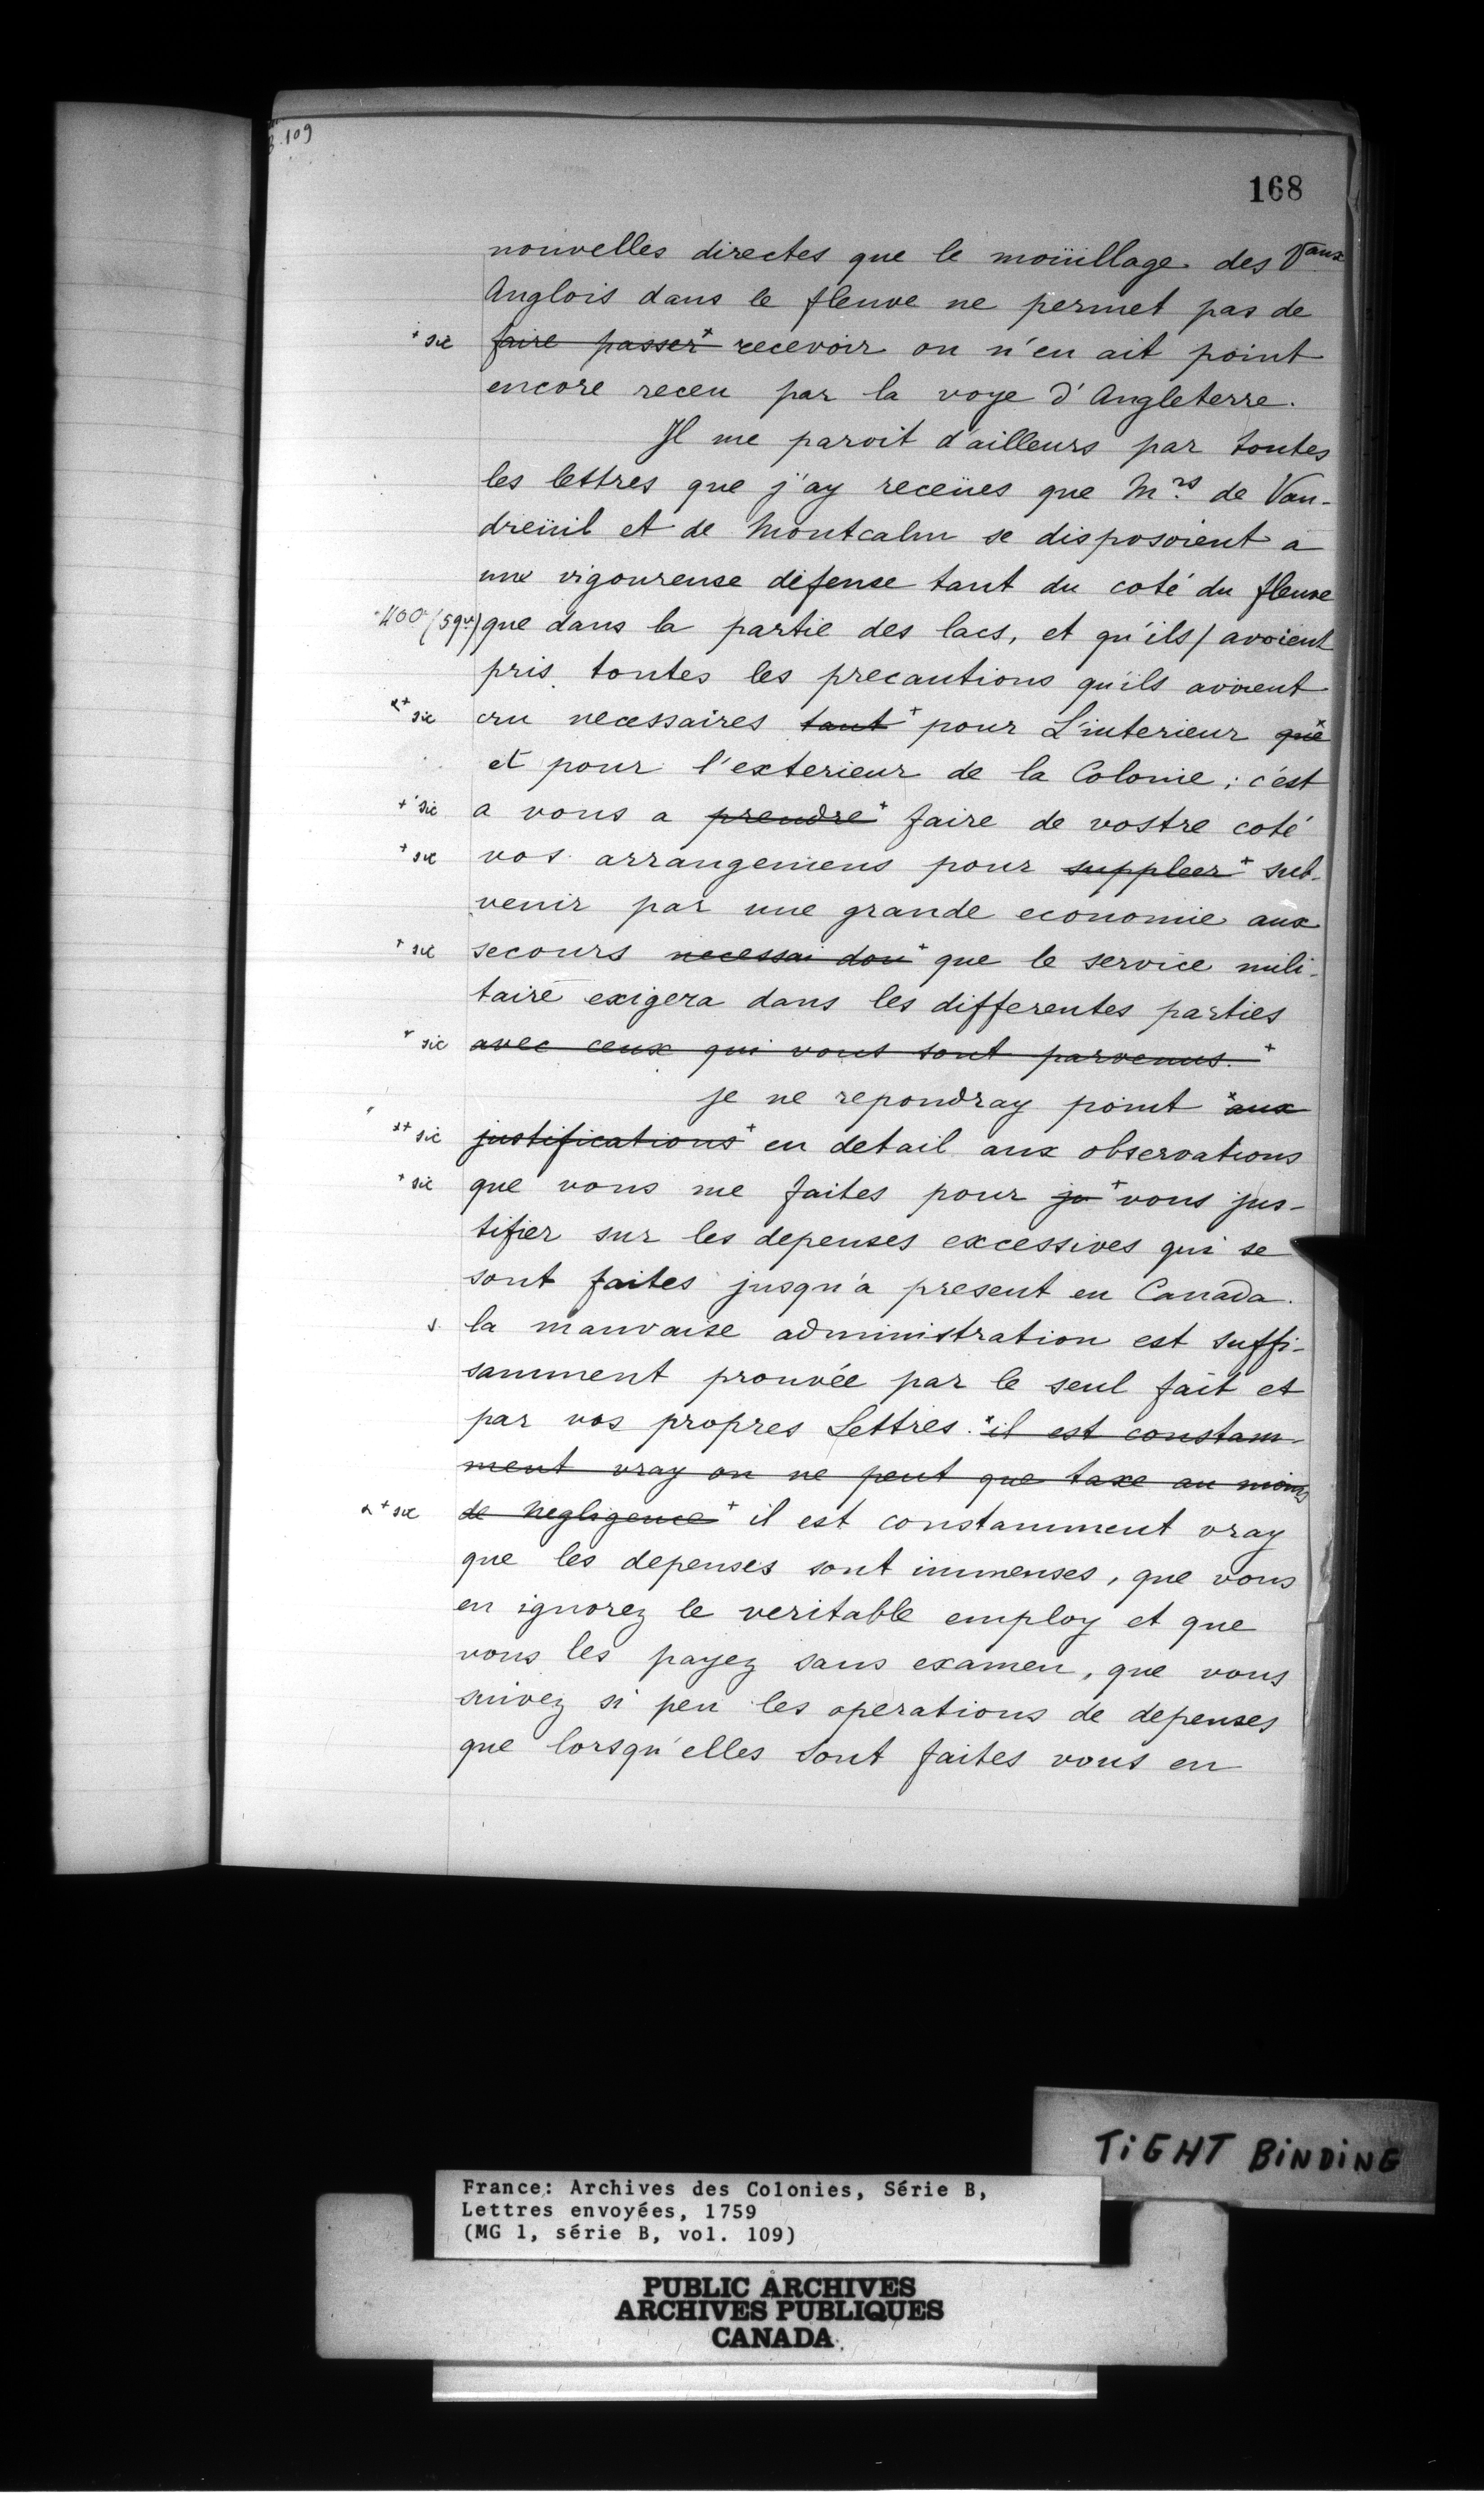 B. 109
168
nouvelles directes que le moüillage des Vaux
Anglois dans le fleuve ne permet pas de
+ sic faire passer + recevoir on n'en ait point
encore receu par la voye d'Angleterre.
Il me paroit d'ailleurs par toutes
les lettres que j'ay receües que Mrs de Vau-
dreüil et de Montcalm se disposoient a
une vigoureuse défense tant du coté du fleuve
400 (59 que dans la partie des lacs, et qu'ils / avoient
pris toutes les precautions qu'ils avoient
x+ sic cru necessaires tant + pour L'interieur que x
et pour l'exterieur de la Colonie; c'est
+ sic a vous a prendre + faire de vostre coté
+ sic vos arrangemens pour suppleer + sub-
venir par une grande economie aux
+ sic secours necessai dou + que le service mili-
taire exigera dans les differentes parties
+ sic avec ceux qui vous sont parvenus. +
Je ne repondray point x aux
x+ sic justifications + en detail aux observations
+ sic que vous me faites pour ju + vous jus-
tifier sur les depenses excessives qui se
sont faites jusqu'a present en Canada.
la mauvaise administration est suffi-
samment prouvée par le seul fait et
par vos propres Lettres. x il est constam-
ment vray on ne peut que taxe au moins
x + sic de negligence + il est constamment vray
que les depenses sont immenses, que vous
en ignorez le veritable employ et que
vous les payez sans examen, que vous
suivez si peu les operations de depenses
que lorsqu'elles sont faites vous en
TIGHT BINDING
France: Archives des Colonies, Série B,
Lettres envoyées, 1759
(MG 1, série B, vol. 109)
PUBLIC ARCHIVES
ARCHIVES PUBLIQUES
CANADA